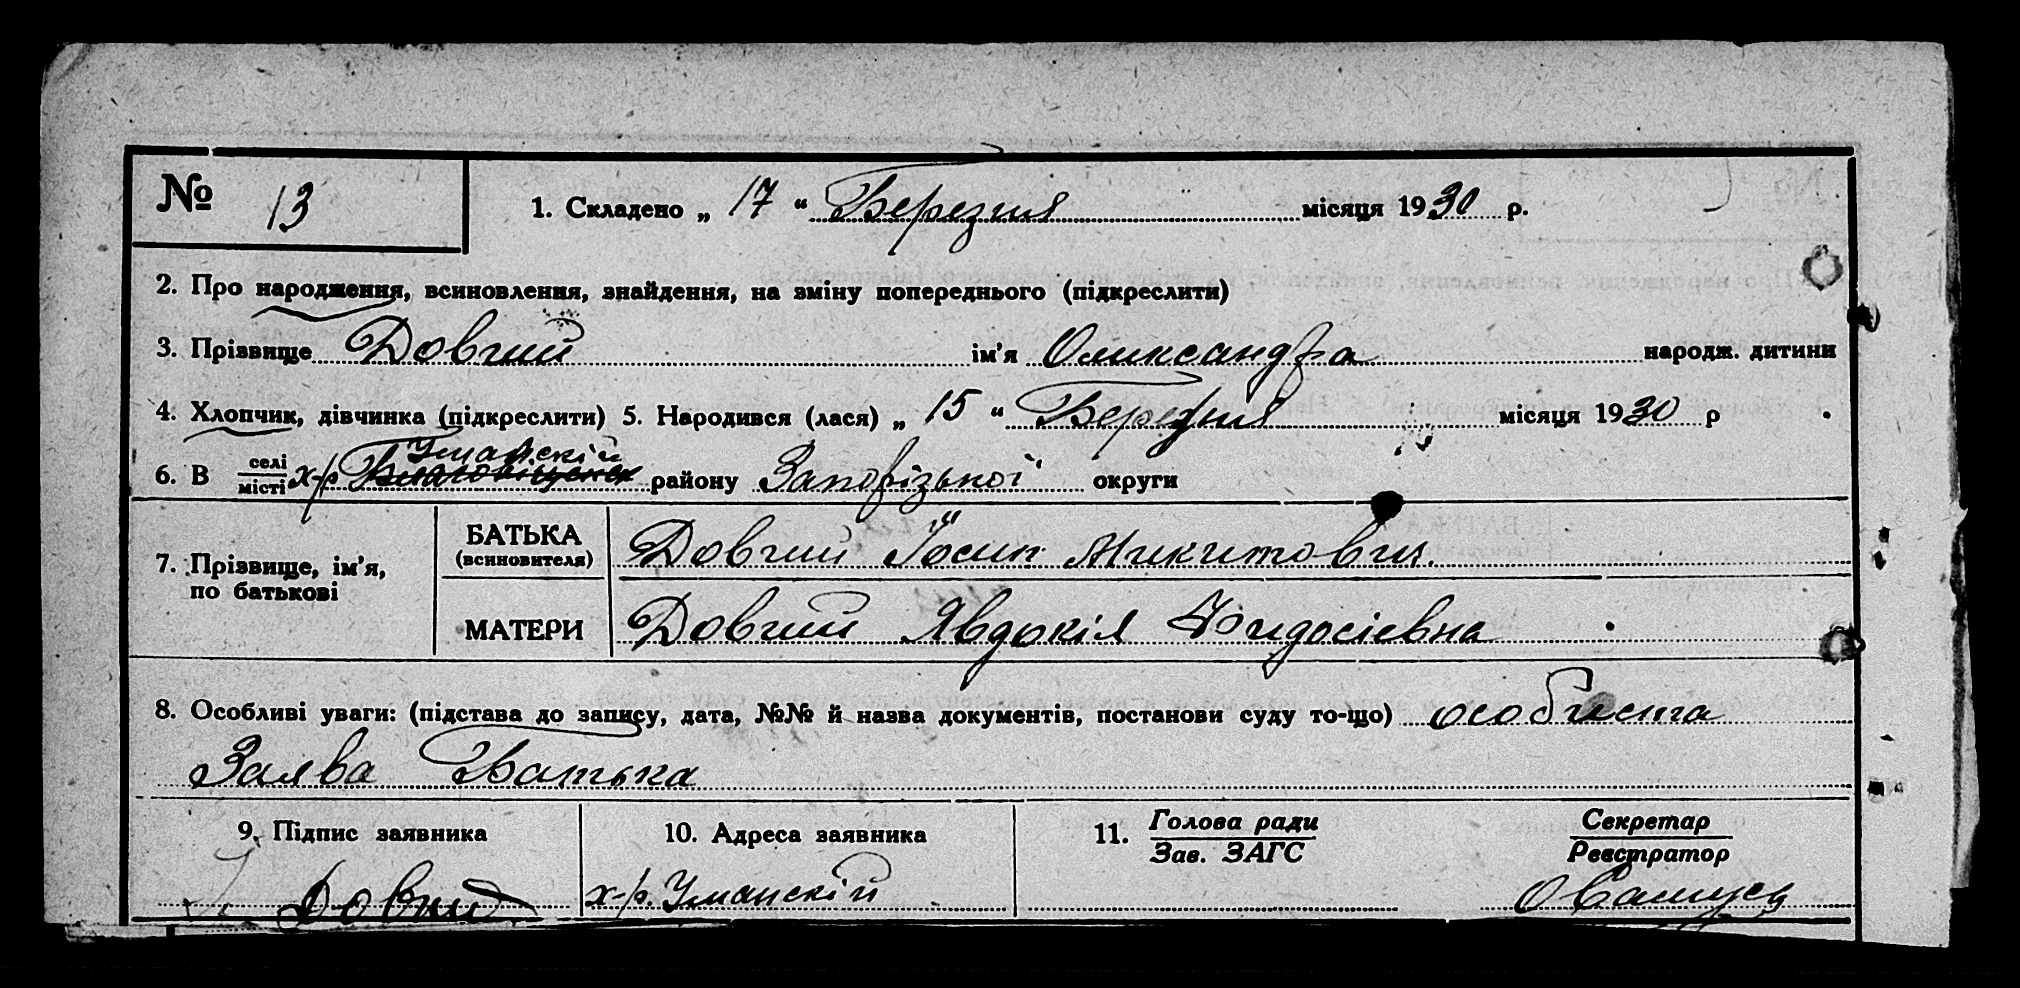 № 13
1. Складено „ 17 “ Березня місяця 1930 р.
2. Про народження, всиновлення, знайдення, на зміну попереднього (підкреслити)
3. Прізвище Довгий ім’я Оликсандра народж. дитини
4. Хлопчик, дівчинка (підкреслити) 5. Народився (лася) „ 15 “ Березня місяця 1930 р
Уманскій
6. В селі місті х-р Благовіщенск району Запорізької округи
7. Прізвище, ім’я, по батькові
БАТЬКА (всиновителя) Довгий Йосип Микитович.
МАТЕРИ Довгий Явдокія Фидосієвна
8. Особливі уваги: (підстава до запису, дата, №№ й назва документів, постанови суду то-що) особиста
Заява Батька
9. Підпис заявника
10. Адреса заявника
11. Голова ради
Зав. ЗАГС
Секретар
Реєстратор
Довгий
х-р. Уманскій